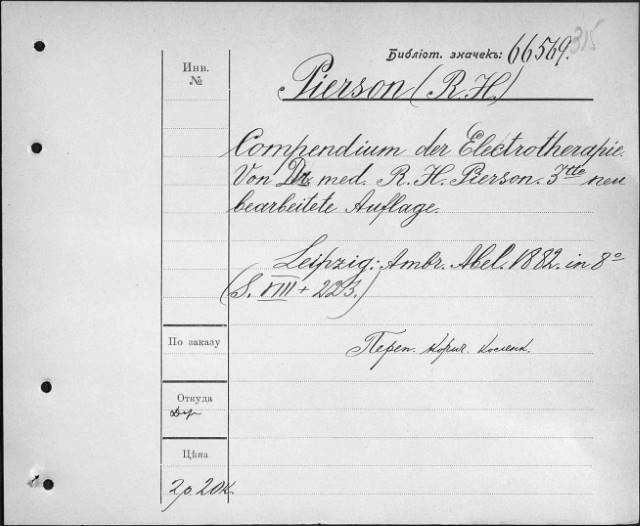 Библіот. значекъ: 66569. 315
Инв.
№
Pierson (R.H.)
Compendium der Electrotherapie.
Von Dr. med. R. H. Pierson. 3tte neu
bearbeitete Auflage.
Leipzig. Ambr. Abel. 1882. in 8º
(S. VIII + 223.)
По заказу
Переп. корич. коленк.
Откуда
Цѣна
2р. 20к.